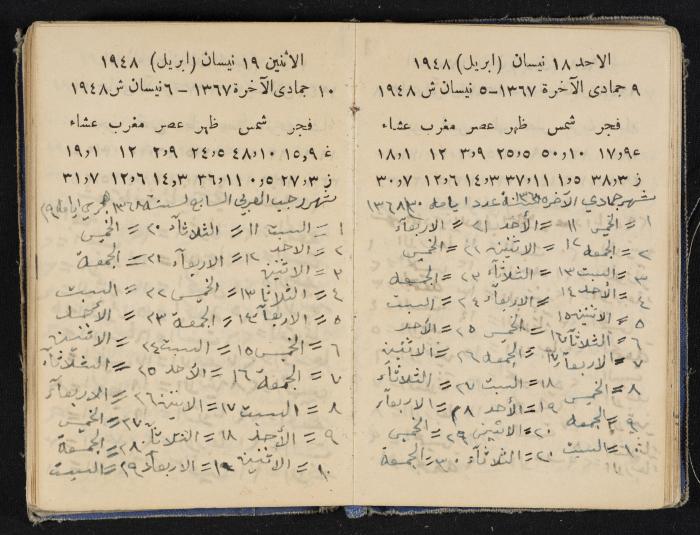 الاحد ١٨ نيسان (ابريل) ١٩٤٨
٩ جمادى الآخرة ١٣٦٧ – ٥ نيسان ش ١٩٤٨
فجر شمس ظهر عصر مغرب عشاء
غ ٩٫١٧ ١٠٫٥٠ ٥٫٢٥ ٩٫٣ ١٢ ١٫١٨
ز ٣٫٣٨ ٥٫١ ١١٫٣٧ ٣٫١٤ ٦٫١٢ ٧٫٣٠
شهر جمادي الآخره عدد ايامه ٣٠ ١٣٦٨
١ = الخميس ١١ = الأحد ٢١ = الاربعآء
٢ = الجمعة ١٢ = الاثنين ٢٢ = الخميس
٣ = السبت ١٣ = الثلاثآء ٢٣ = الجمعة
٤ = الأحد ١٤ = الاربعآء ٢٤ = السبت
٥ = الاثنين ١٥ = الخميس ٢٥ = الأحد
٦ = الثلاثآء ١٦ = الجمعه ٢٦ = الاثنين
٧ = الاربعآء ١٧ = السبت ٢٧ = الثلاثآء
٨ = الخميس ١٨ = الأحد ٢٨ = الاربعآء
٩ = الجمعه ١٩ = الاثنين ٢٩ = الخميس
١٠ = السبت ٢٠ = الثلاثآء ٣٠ = الجمعة
الاثنين ١٩ نيسان (ابريل) ١٩٤٨
١٠ جمادى الآخرة ١٣٦٧ – ٦ نيسان ش ١٩٤٨
فجر شمس ظهر عصر مغرب عشاء
غ ٩٫١٥ ١٠٫٤٨ ٥٫٢٤ ٩٫٢ ١٢ ١٫١٩
ز ٣٫٢٧ ٥٫٠ ١١٫٣٦ ٣٫١٤ ٦٫١٢ ٧٫٣١
شهر رجب العربي السابع لسنت ١٣٦٨ هـ ايامه ٢٩
١ = السبت ١١ = الثلاثآء ٢٠ = الخميس
٢ = الاحد ١٢ = الاربعآء ٢١ = الجمعة
٣ = الاثنين
٤ = الثلاثا ١٣ = الخميس ٢٢ = السبت
٥ = الاربعآء ١٤ = الجمعة ٢٣ = الأحد
٦ = الخميس ١٥ = السبت ٢٤ = الاثنين
٧ = الجمعة ١٦ = الأحد ٢٥ = الثلاثآء
٨ = السبت ١٧ = الاثنين ٢٦ = الاربعآء
٩ = الأحد ١٨ = الثلاثآ ٢٧ = الخميس
١٠ = الاثنين ١٩ = الاربعآء ٢٨ = الجمعة
٢٩ = السبت